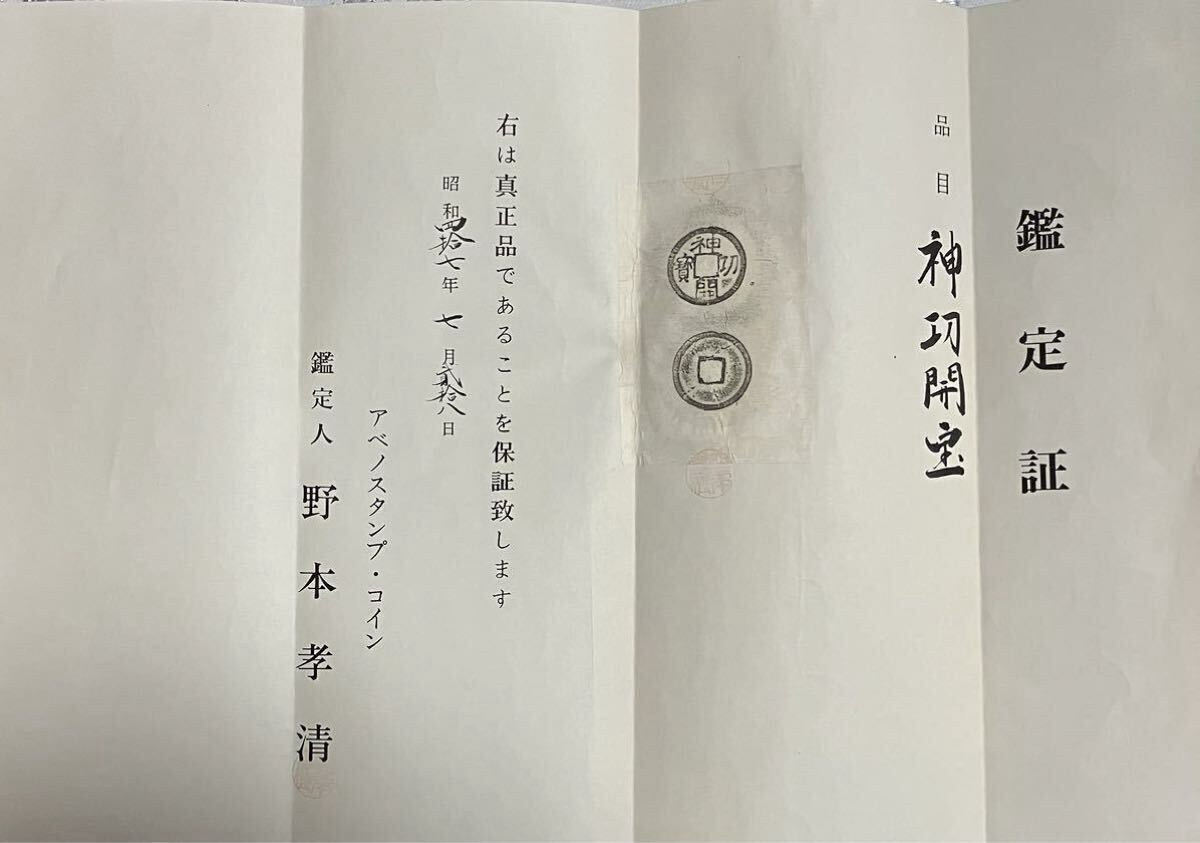 鑑定証
品目 神功開宝
神功開寳
右は真正品であることを保証致します
昭和四拾七年七月貳拾八日
アベノスタンプ・コイン
鑑定人 野本孝清